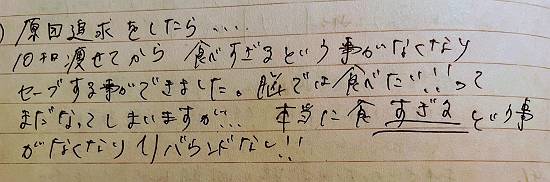 ) 原因追求をしたら....
10キロ痩せてから 食べすぎるという事がなくなり
セーブする事ができました。脳では食べたい!!って
まだなってしまいますが... 本当に食すぎるという事
がなくなりリバウンドなし!!